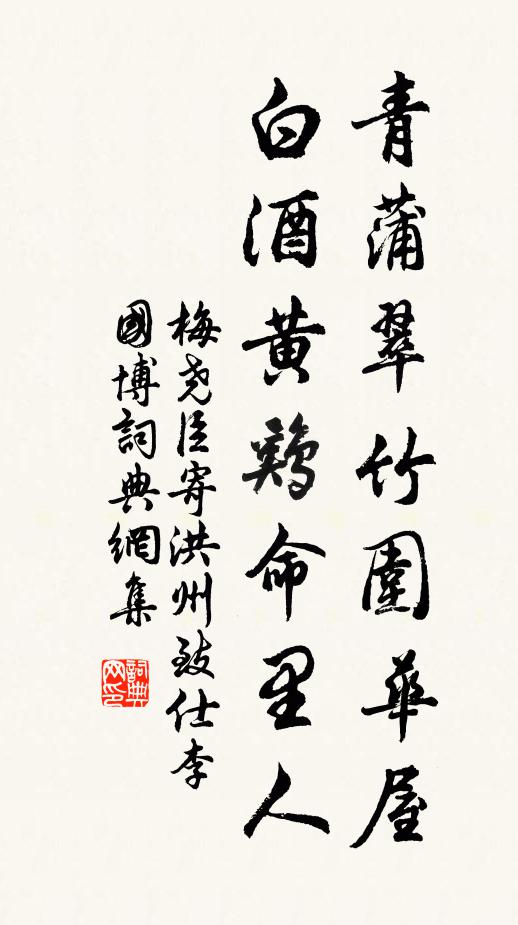 青蒲翠竹圍華屋
白酒黃鷄命里人
梅尧臣寄洪州致仕李
國博詞典網集
詞典
网印